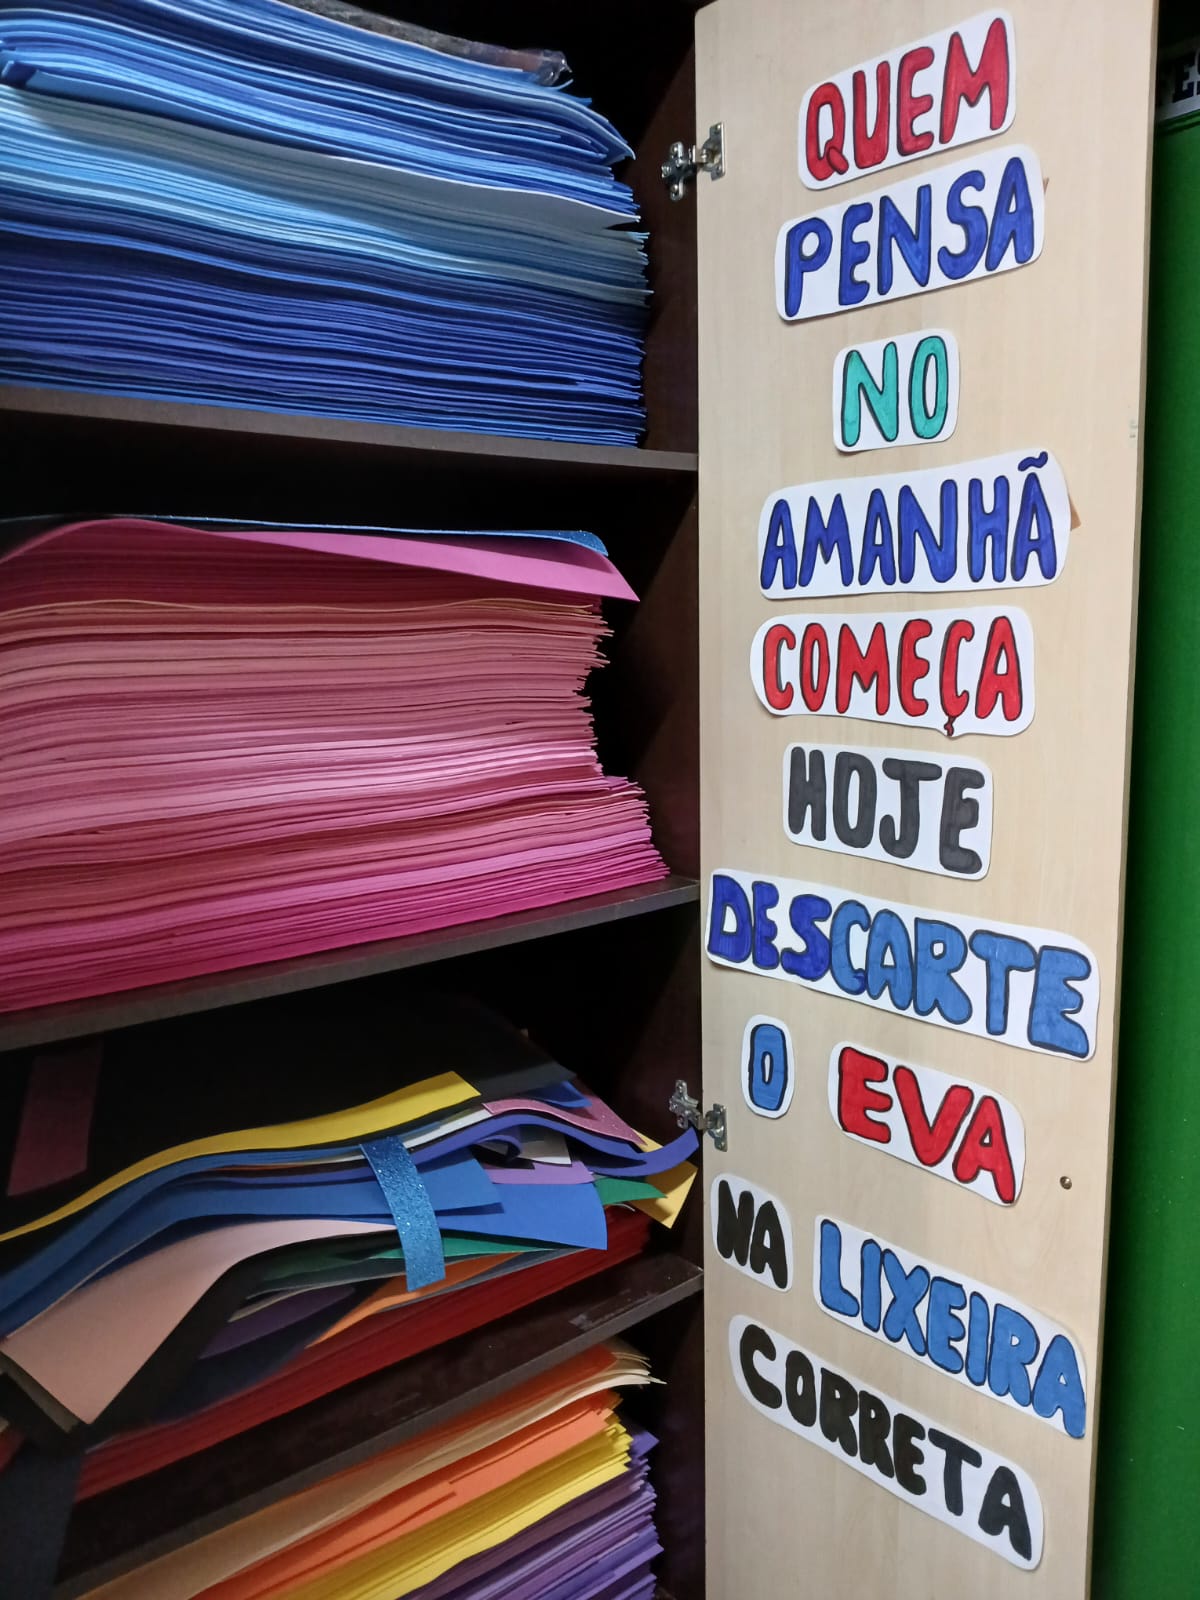 QUEM
PENSA
NO
AMANHÃ
COMEÇA
HOJE
DESCARTE
O EVA
NA LIXEIRA
CORRETA